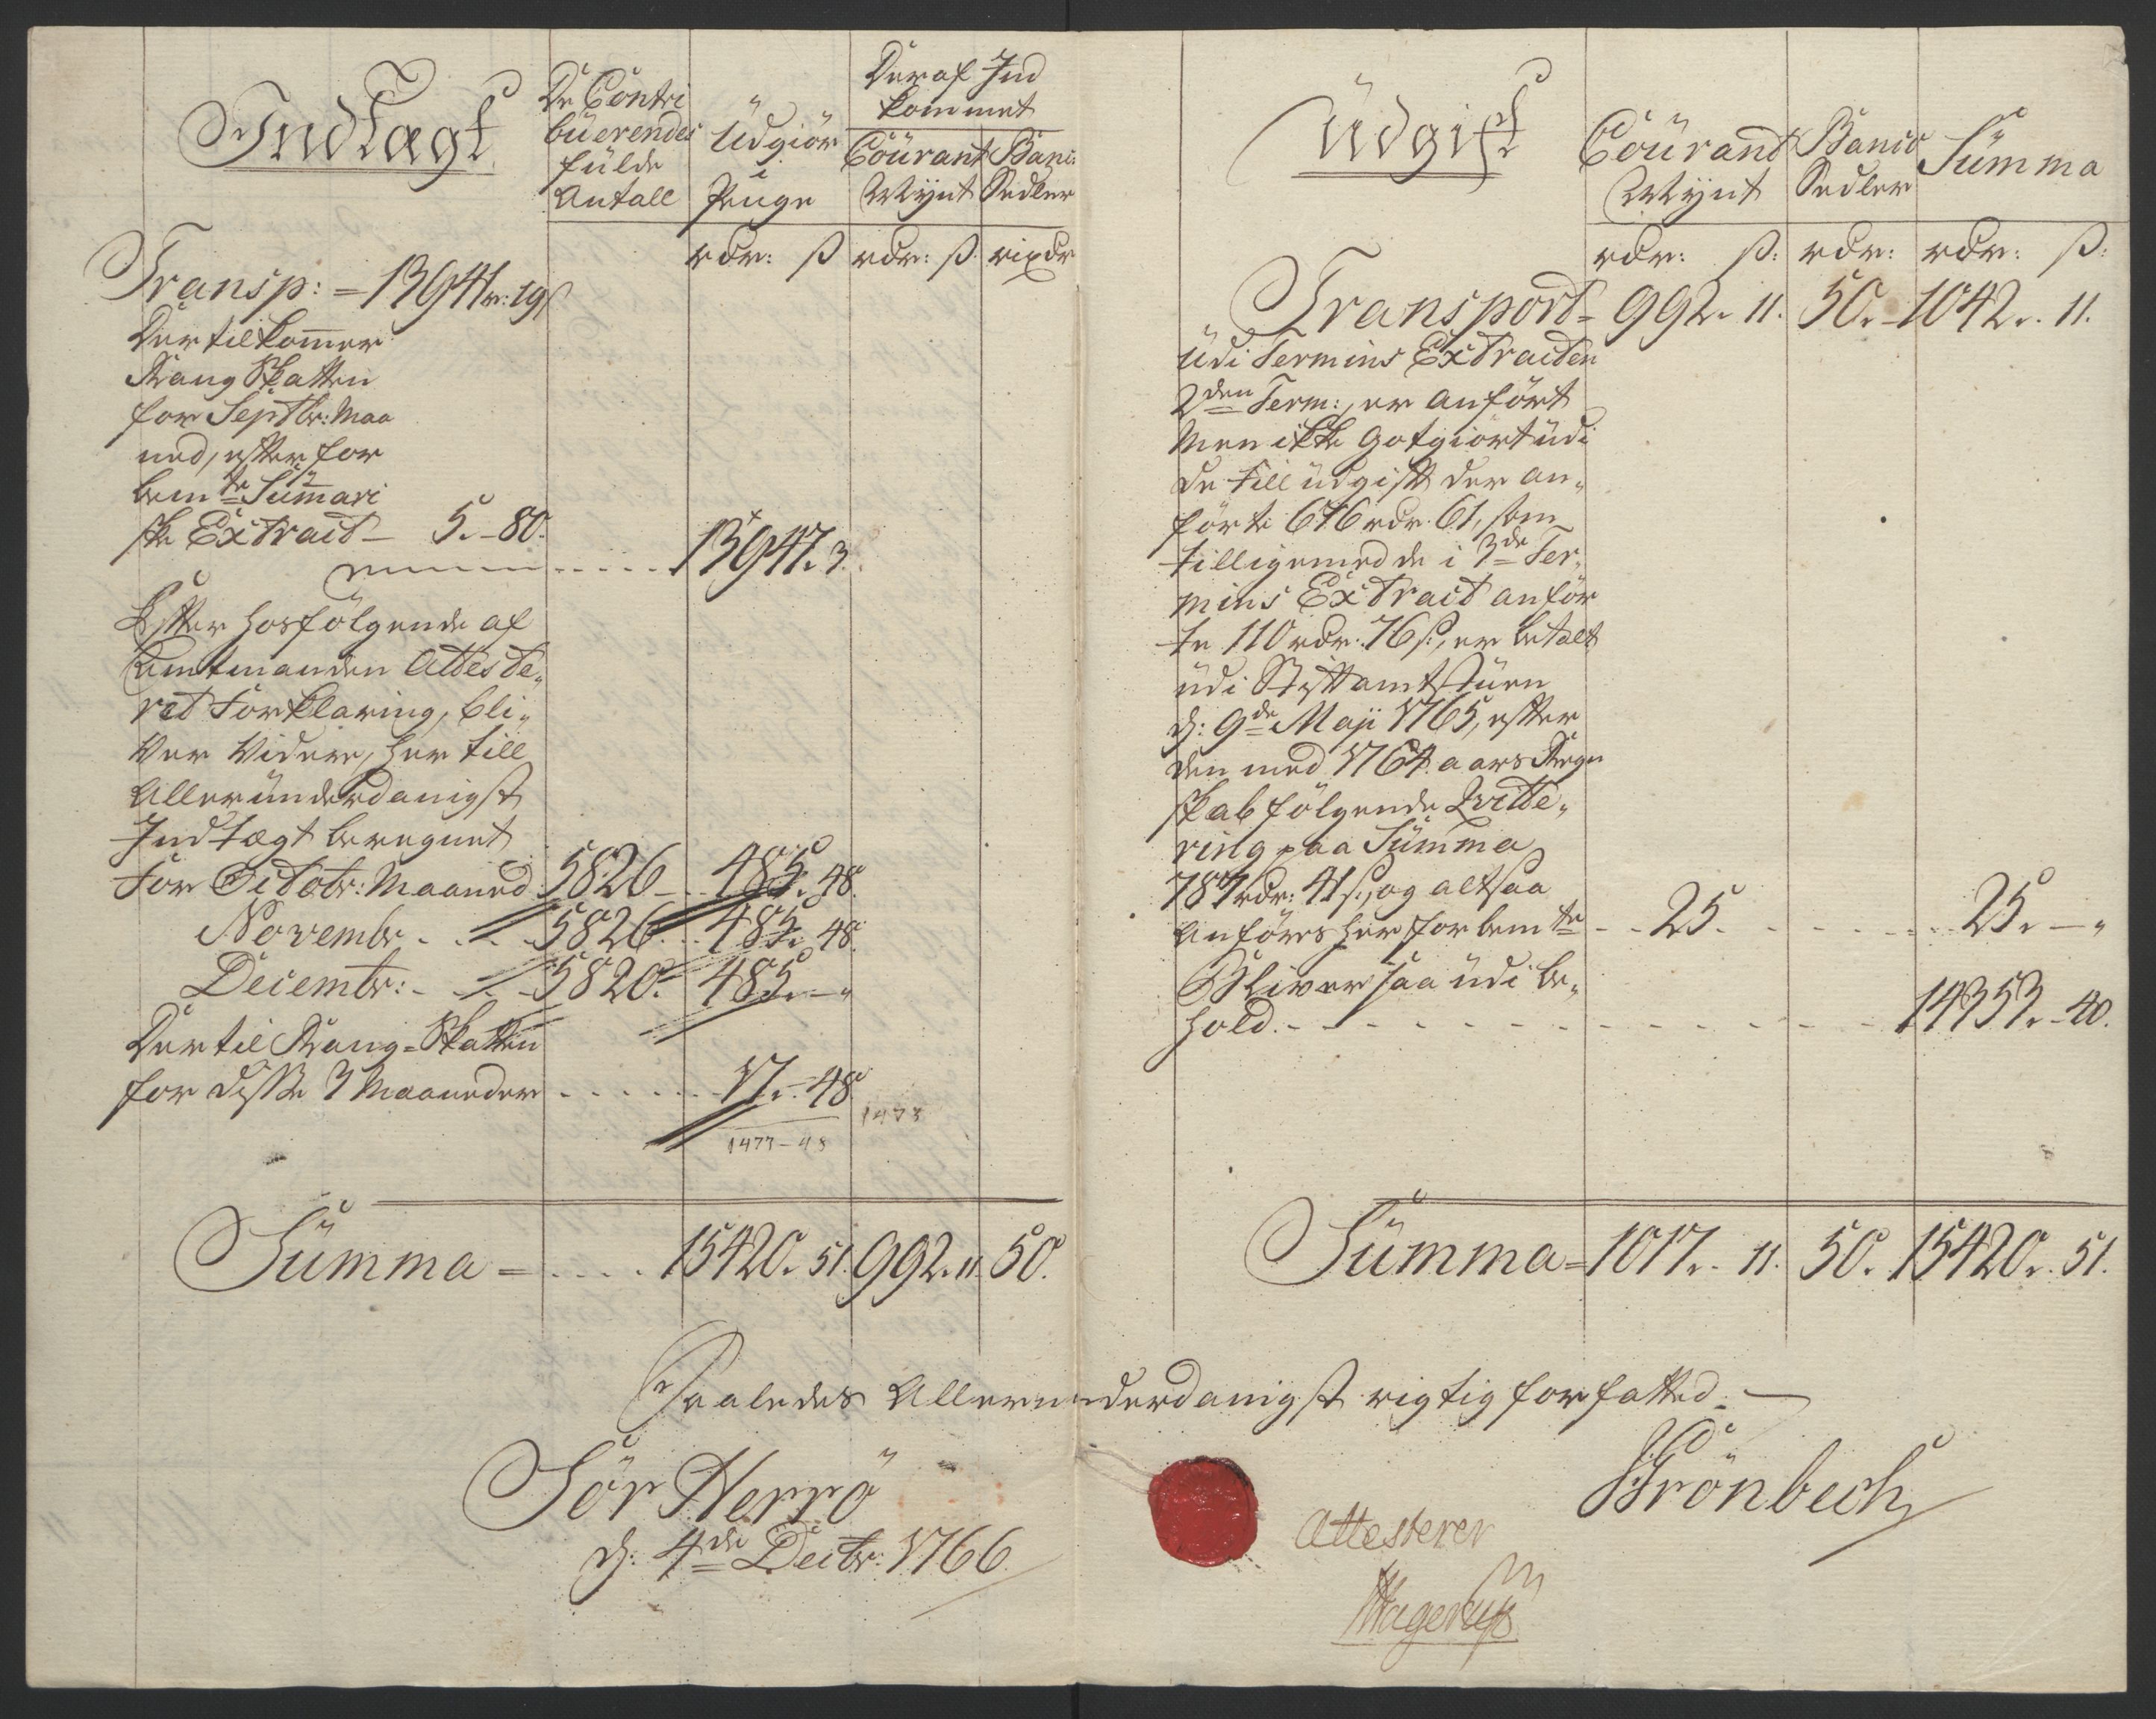 Indtægt
De Contri
buerendes
fulde
Antall
Udgiör
i
Penge
Deraf Ind
kommet
Courant
Mynt
Banc:
Sedler
rdr: ß rdr: ß. rixdr
Transp: = 13941r: 19ß
Dertilkommer
Rang Skatten
for Septbr: Maa
ned, efter for
bemte Summari
ske Extract - 5. - 80.
13947. 3.
Efter hosfölgende af
Amtmanden Atteste„
ret Forklaring, bli„
ver videre, her till
Allerunderdanigst
Indtægt beregnet
for Octobr: Maaned 5826 - 485. 48.
Novembr 5826. 485. 48.
Decembr: 5820. 485. - „
Dertil Rang=Skatten
for disse 3 Maaneder 17. - 48
1477 - 48
1473
Summa = 15420. 51. 992. 11. 50.
Udgift
Courand
Mynt
Banco
Sedler
Summa
rdr: ß: rdr: rdr: ß:
Transport = 992. 11. 50. - 1042. 11.
udi Termins Extracten
2den Term:, er anfört
men ikke Gotgiort udi
de till udgift der an„
förte 676 rdr. 61, som
tilligemed de i 3de Ter„
mins Extract anför
te 110 rdr: 76ß, er betalt
udi Stiftamtstuen
d: 9de Maji 1765, efter
den med 1764 aars Regn
skab fölgende Qvitte„
ring paa Summa
787 rdr: 41ß, og altsaa
Anföres her for bemte 25. 25. - „
Bliver saa udi be„
hold. 14353. - 40.
Summa = 1017. - 11. 50. 15420. 51.
Saaledes Allerunderdanigst rigtig forfatted. -
Sör Herrö
d: 4de Decbr: 1766.
Grönbech
Attesterer
Hagerup